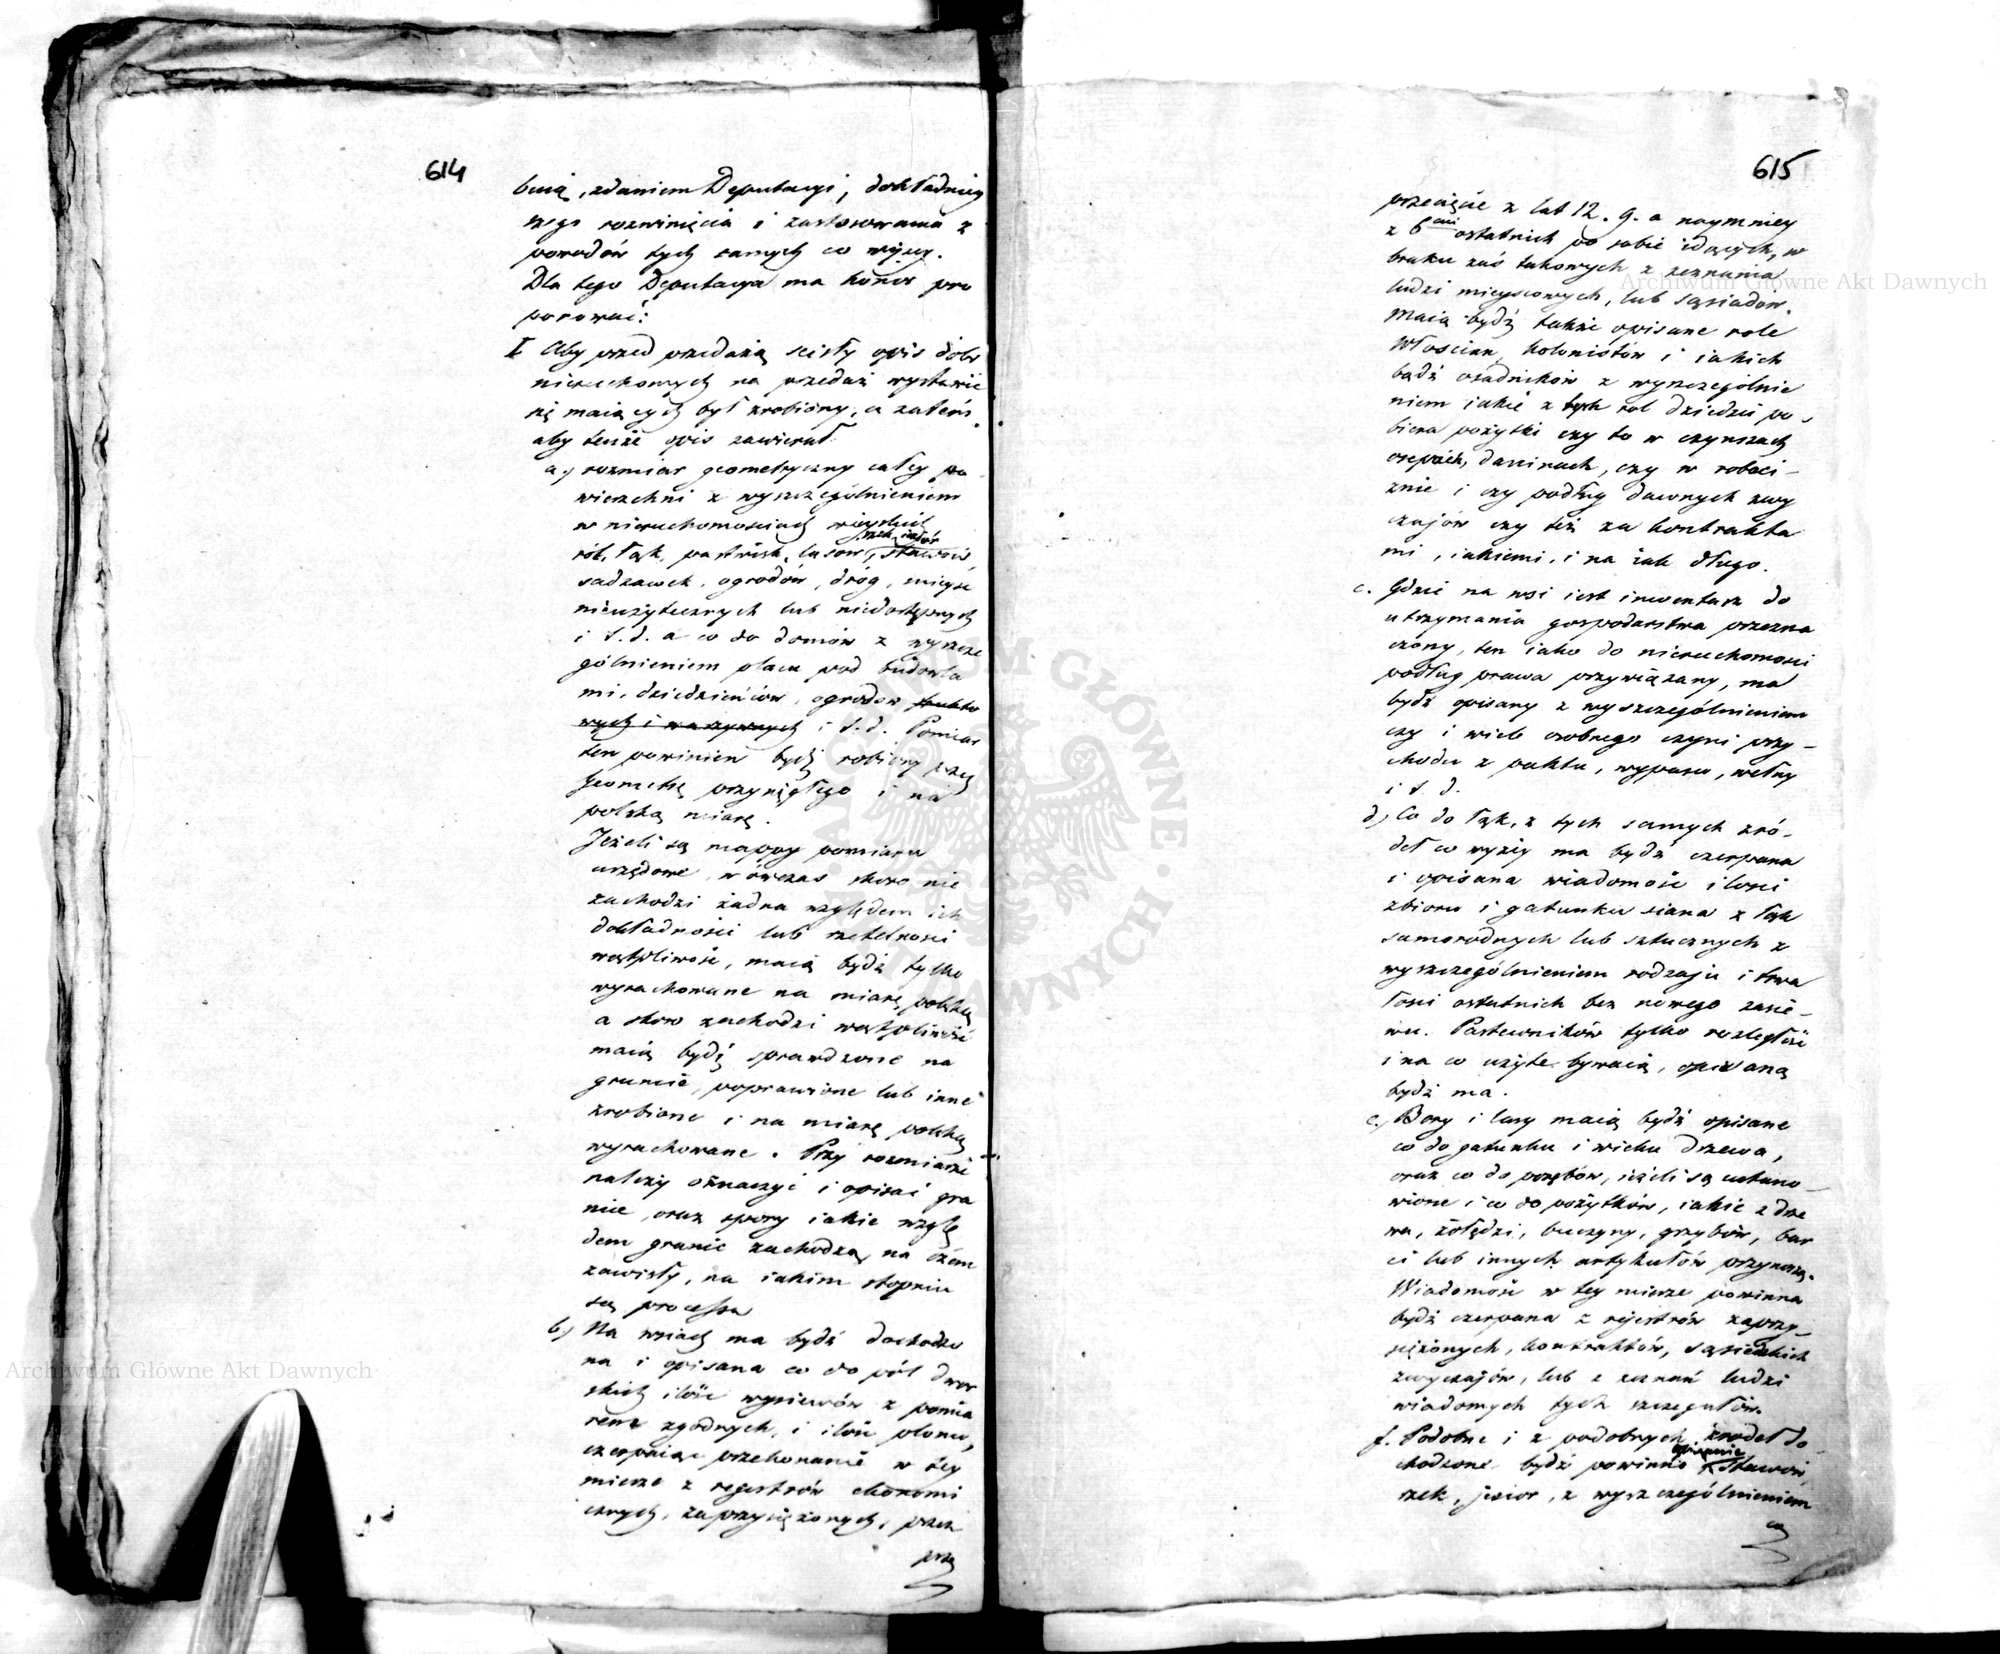 614
bują, zdaniem Deputacyi, dokładniey
szego rozwinięcia i zastosowania z
powodów tych samych co wyżey.
Dla tego Deputacya ma honor pro
ponować:
I Aby przed przedażą scisły opis dobr
nieruchomych na przedaż wystawić
się maiących był zrobiony, a zatem
aby tenże opis zawierał
a.) rozmiar geometryczny całey po
wierzchni z wyszczególnieniem
w nieruchomosciach wieyskich
rzek, iezior
ról, łąk, pastwisk, lasow, stawów,
sadzawek, ogrodów, dróg, mieysc
nieużytecznych lub niedostępnych
i t. d. a co do domów z wyszcze
gólnieniem placu pod budowla
mi, dziedzińców, ogrodow frukto
wych i warzywnych i t. d. Pomiar
ten powinien bydź robiony przez
Jeometrę przysięgłego i na
polską miarę.
Jeżeli są mappy pomiaru
urzędowe, wówczas skoro nie
zachodzi żadna względem ich
dokładności lub rzetelności
wątpliwość, maią bydź tylko
wyrachowane na miarę polską
a skoro zachodzi wątpliwość
maią bydź sprawdzone na
gruncie, poprawione lub inne
zrobione i na miarę polską
wyrachowane. Przy rozmiarze
należy oznaczyć i opisać gra
nice, oraz spory iakie wzglę
dem granic zachodzą, na czem
zawisły, na iakim stopniu
są processa
b) Na wsiach ma bydź dochodzo
na i opisana co do pól dwor
skich ilość wysiewów z pomia
rem zgodnych, i ilość plonu,
czerpaiąc przekonanie w tey
mierze z regestrów ekonomi
cznych, zaprzysiężonych, przez
prze
615
przecięcie z lat 12. 9. a naymniey
z 6ciu ostatnich po sobie idących, w
braku zaś takowych z zeznania
ludzi mieyscowych, lub sąsiadow.
Maią bydź także opisane role
Włoscian, kolonistów i iakich
bądź osadników z wyszczególnie
niem iakie z tych rol dziedzic po-
biera pożytki czy to w czynszach
osepach, daninach, czy w roboci-
znie i czy podług dawnych zwy
czajów czy też za kontrakta
mi, iakiemi, i na iak długo.
c. Gdzie na wsi iest inwentarz do
utrzymania gospodarstwa przezna
czony, ten iako do nieruchomosci
podług prawa przywiązany, ma
bydź opisany z wyszczególnieniem
czy i wiele osobnego czyni przy-
chodu z paktu, wypasu, wełny
i t. d.
d) Co do łąk, z tych samych zró-
deł co wyżey ma bydź czerpana
i opisana wiadomość ilosci
zbioru i gatunku siana z łąk
samorodnych lub sztucznych z
wyszczególnieniem rodzaju i trwa
łosci ostatnich bez nowego zasie-
wu. Pastewników tylko rozległość
i na co użyte bywaią, opisaną
bydź ma.
e.) Bory i lasy maią bydź opisane
co do gatunku i wieku drzewa,
oraz co do porębów, ieżeli są ustano-
wione i co do pożytków, iakie z drze
wa, żołędzi, buczyny, grzybów, bar
ci lub innych artykułów przynoszą.
Wiadomość w tey mierze powinna
bydź czerpana z rejestrów zaprzy-
siężonych, kontraktów, sąsiedzkich
zwyczajów, lub z zeznań ludzi
wiadomych tych szczegułów.
f. Podobne i z podobnych źrodeł do-
opisanie
chodzone bydź powinno stawów,
rzek, jezior, z wyszczególnieniem
co